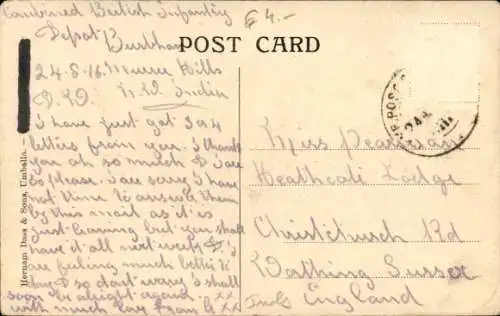 Combined British Infantry
Depot Burbhan
24-8-16. Murree Hills
N.W. India
I have just got 3 or 4
letters from you. I thank
you oh so much D. I are
so please. I are sorry I have
not time to answer them
by this mail as it is
just leaving but you shall
have it all next week. D. I
are feeling much better to
day D so dont worry I shall
soon be alright again xx
with much love from G xx
£4.-
POST CARD
Hernam Dass & Sons, Umballa.
Miss Pearman
Heathcate Lodge
Christchurch Rd
Worthing Sussex
England